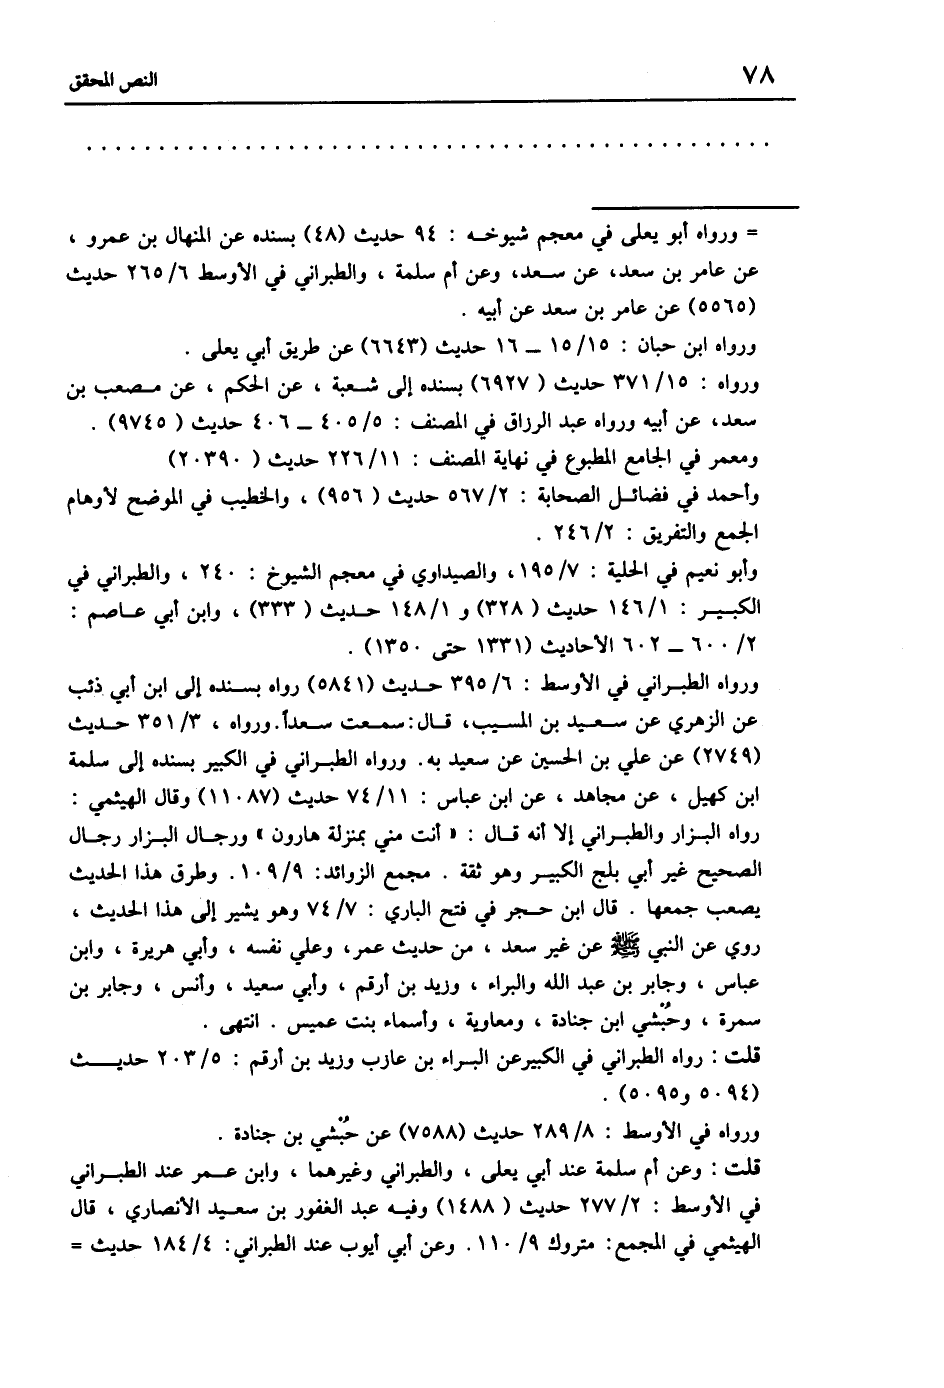 ٧٨ النص المحقق
. . . . . . . . . . . . . . . . . . . . . . . . . . . . . . . . . . . . . . . . . . . . . . . .
= ورواه أبو يعلى في معجم شيوخه : ٩٤ حديث (٤٨) بسنده عن المنهال بن عمرو ،
عن عامر بن سعد، عن سعد، وعن أم سلمة ، والطبراني في الأوسط ٢٦٥/٦ حديث
(٥٥٦٥) عن عامر بن سعد عن أبيه .
ورواه ابن حبان : ١٥/١٥ ــ ١٦ حديث (٦٦٤٣) عن طريق أبي يعلى .
ورواه : ٣٧١/١٥ حديث ( ٦٩٢٧) بسنده إلى شعبة ، عن الحكم ، عن مصعب بن
سعد، عن أبيه ورواه عبد الرزاق في المصنف : ٤٠٥/٥ ــ ٤٠٦ حديث ( ٩٧٤٥) .
ومعمر في الجامع المطبوع في نهاية المصنف : ٢٢٦/١١ حديث ( ٢٠٣٩٠)
وأحمد في فضائل الصحابة : ٥٦٧/٢ حديث ( ٩٥٦) ، والخطيب في الموضح لأوهام
الجمع والتفريق : ٢٤٦/٢ .
وأبو نعيم في الحلية : ١٩٥/٧، والصيداوي في معجم الشيوخ : ٢٤٠ ، والطبراني في
الكبير : ١٤٦/١ حديث ( ٣٢٨) و ١٤٨/١ حديث ( ٣٣٣) ، وابن أبي عاصم :
٦٠٠/٢ ــ ٦٠٢ الأحاديث (١٣٣١ حتى ١٣٥٠) .
ورواه الطبراني في الأوسط : ٣٩٥/٦ حديث (٥٨٤١) رواه بسنده إلى ابن أبي ذئب
عن الزهري عن سعيد بن المسيب، قال: سمعت سعداً. ورواه ، ٣٥١/٣ حديث
(٢٧٤٩) عن علي بن الحسين عن سعيد به. ورواه الطبراني في الكبير بسنده إلى سلمة
ابن كهيل ، عن مجاهد ، عن ابن عباس : ٧٤/١١ حديث (١١٠٨٧) وقال الهيثمي :
رواه البزار والطبراني إلا أنه قال : « أنت مني بمنزلة هارون » ورجال البزار رجال
الصحيح غير أبي بلج الكبير وهو ثقة . مجمع الزوائد: ١٠٩/٩. وطرق هذا الحديث
يصعب جمعها . قال ابن حجر في فتح الباري : ٧٤/٧ وهو يشير إلى هذا الحديث ،
روي عن النبي ﷺ عن غير سعد ، من حديث عمر، وعلي نفسه ، وأبي هريرة ، وابن
عباس ، وجابر بن عبد الله والبراء ، وزيد بن أرقم ، وأبي سعيد ، وأنس ، وجابر بن
سمرة ، وحُبْشي ابن جنادة ، ومعاوية ، وأسماء بنت عميس . انتهى .
قلت : رواه الطبراني في الكبيرعن البراء بن عازب وزيد بن أرقم : ٢٠٣/٥ حديث
(٥٠٩٤ و٥٠٩٥) .
ورواه في الأوسط : ٢٨٩/٨ حديث (٧٥٨٨) عن حُبْشي بن جنادة .
قلت : وعن أم سلمة عند أبي يعلى ، والطبراني وغيرهما ، وابن عمر عند الطبراني
في الأوسط : ٢٧٧/٢ حديث ( ١٤٨٨) وفيه عبد الغفور بن سعيد الأنصاري ، قال
الهيثمي في المجمع: متروك ١١٠/٩. وعن أبي أيوب عند الطبراني: ١٨٤/٤ حديث =